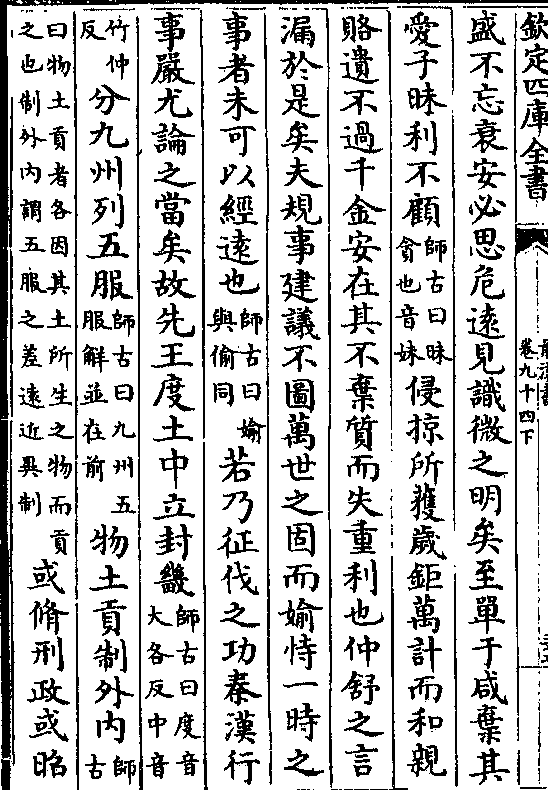 欽定四庫全書
卷九十四下
盛不忘衰安必思危遠見識微之明矣至單于咸棄其
愛子昧利不顧師古曰昧貪也音妹侵掠所獲歲鉅萬計而和親
賂遺不過千金安在其不棄質而失重利也仲舒之言
漏於是矣夫規事建議不圖萬世之固而媮恃一時之
事者未可以經遠也師古曰媮與偷同若乃征伐之功秦漢行
事嚴尤論之當矣故先王度土中立封畿師古曰度音大各反中音
竹仲反分九州列五服師古曰九州五服解並在前物土貢制外内師古
曰物土貢者各因其土所生之物而貢之也制外内謂五服之差遠近異制或脩刑政或昭